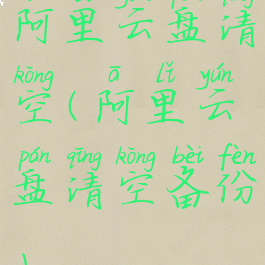 阿里云盘清
kōng ā lǐ yún
空(阿里云
pán qīng kōng bèi fèn
盘清空备份
)